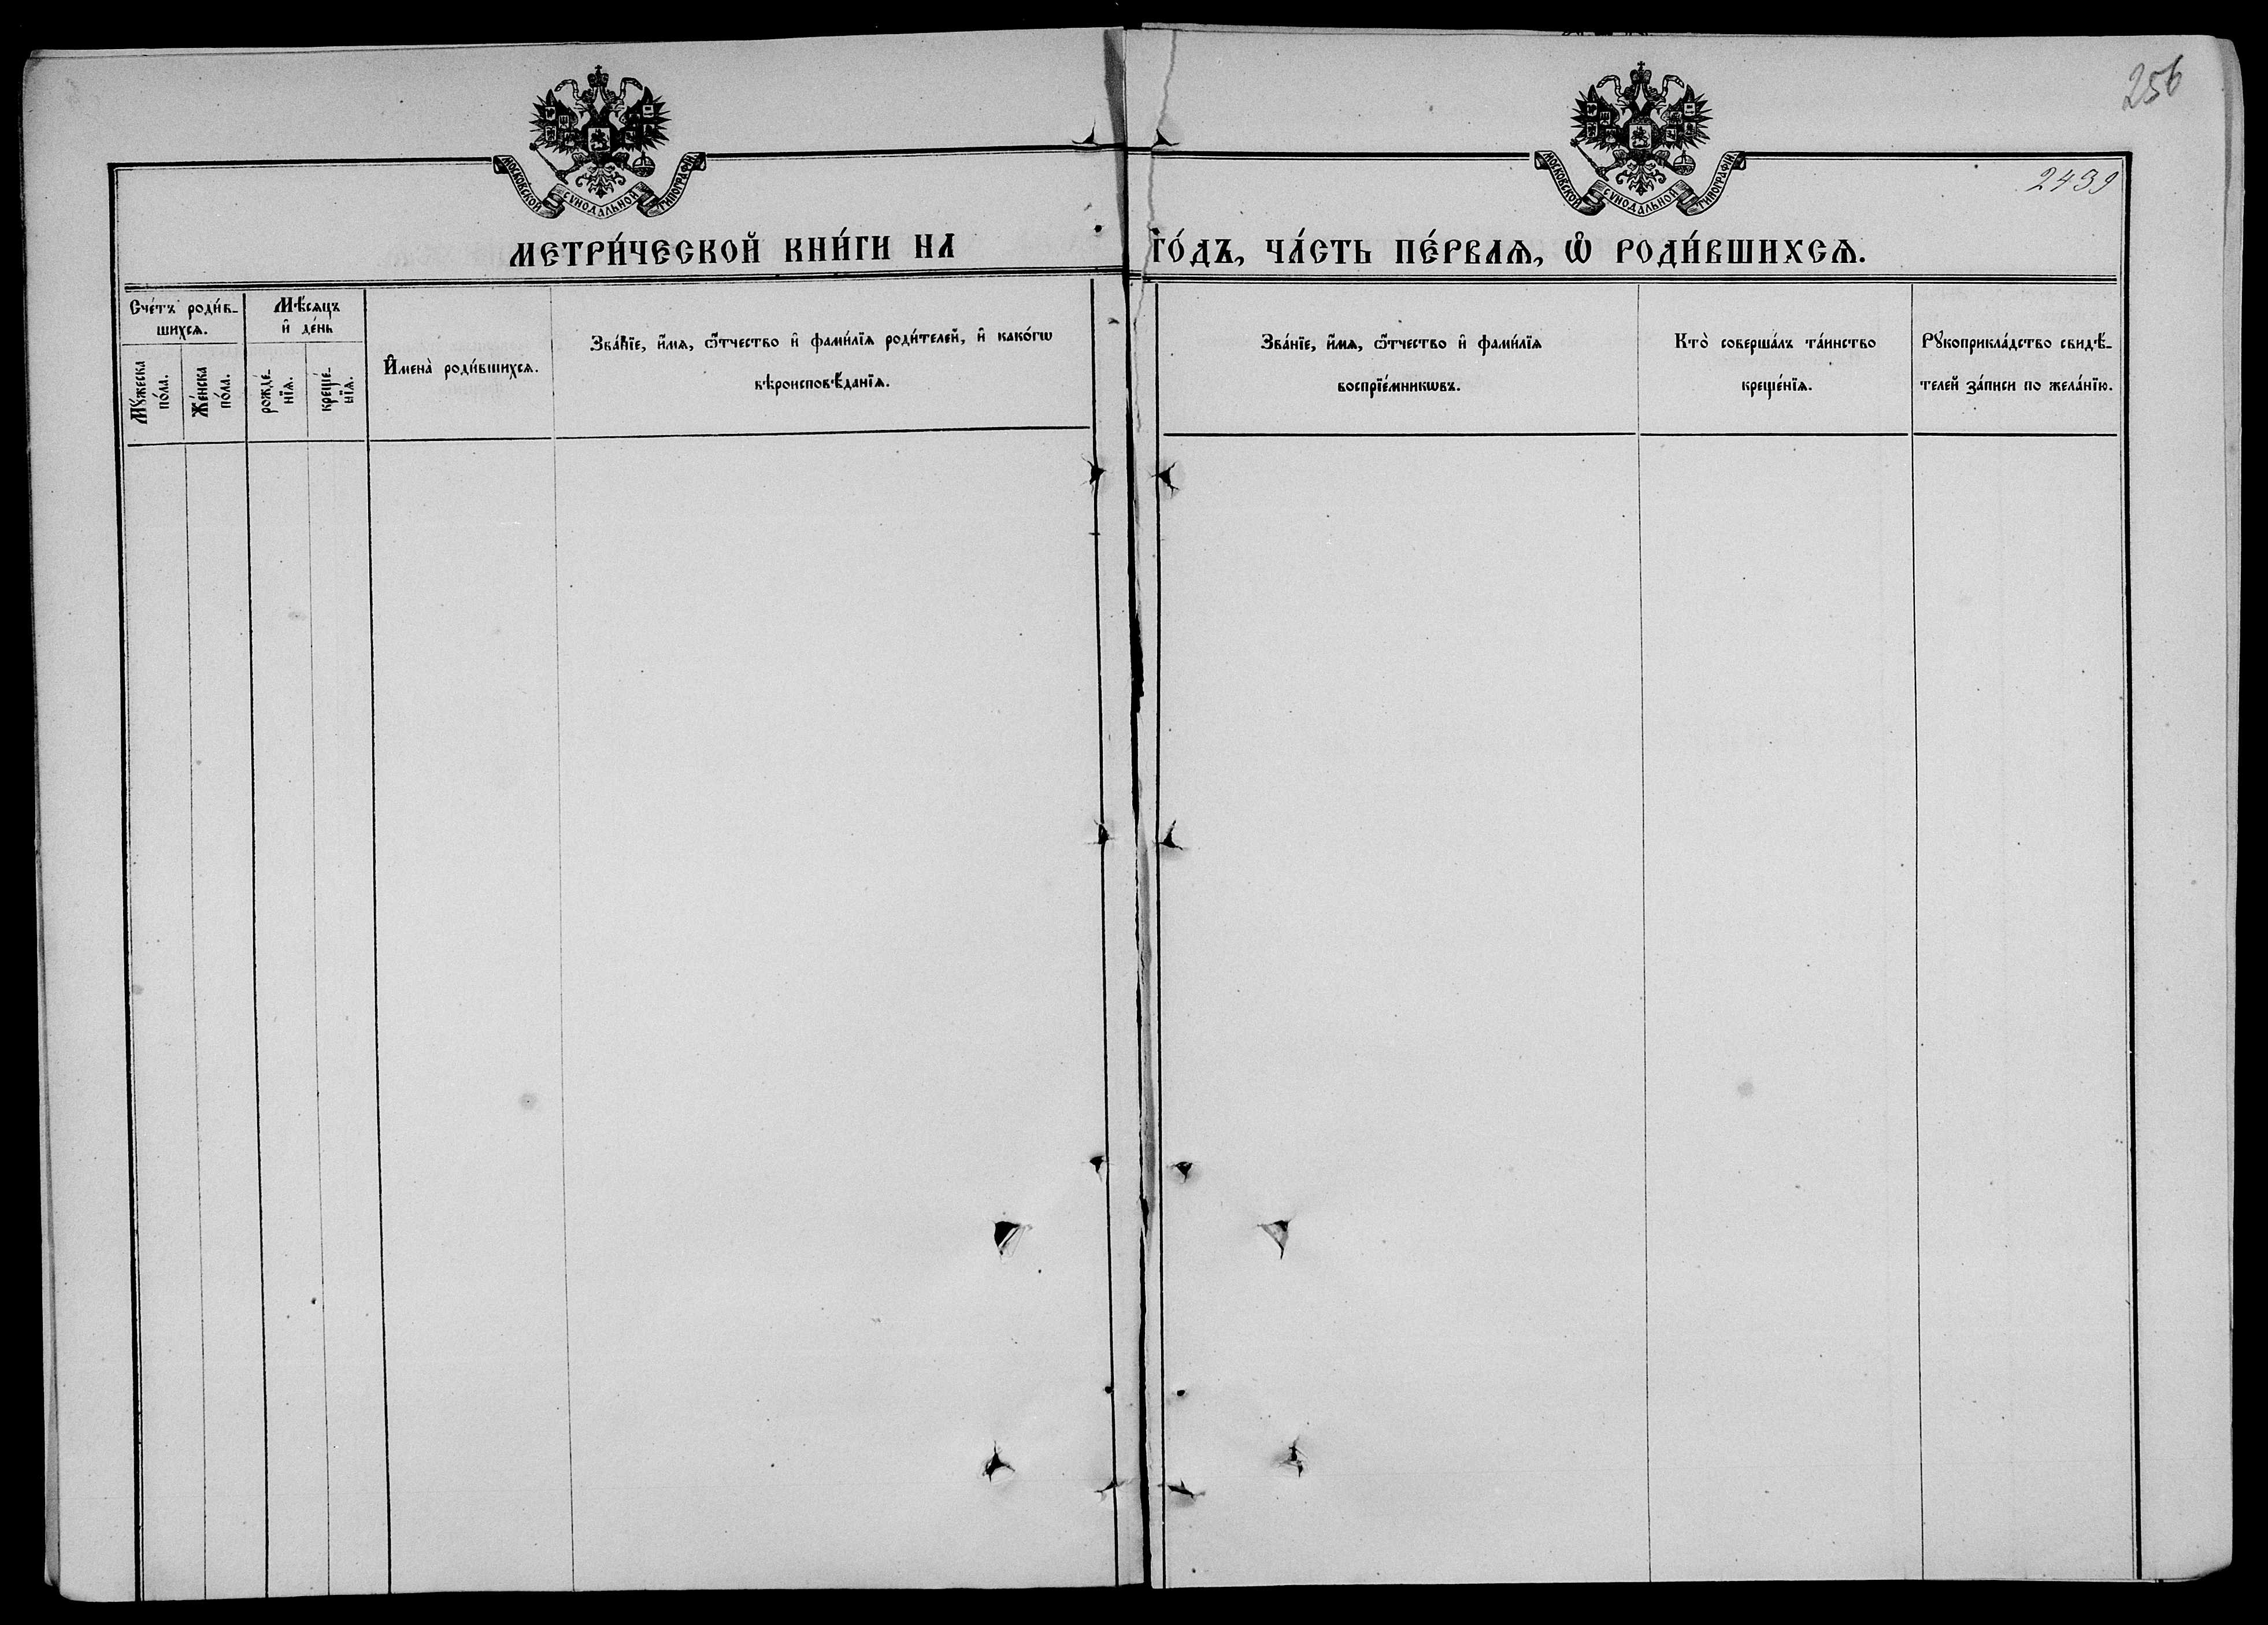 256
МОСКОВСКОЙ СѴНОДАЛЬНОЙ ТИПОГРАФІИ
МОСКОВСКОЙ СѴНОДАЛЬНОЙ ТИПОГРАФІИ
2439
МЕТРИ́ЧЕСКОЙ КНИ́ГИ НА ГО́ДЪ, ЧА́СТЬ ПЕ́РВАѦ, Ѡ҆ РОДИ́ВШИХСѦ.
Сче́тъ роди́в-
шихсѧ.
Мꙋ́жеска
по́ла.
Же́нска
по́ла.
Мѣ́сѧцъ
и҆ де́нь
рожде́-
нїѧ.
креще́-
нїѧ.
И҆мена̀ роди́вшихсѧ.
Зва́нїе, и҆́мѧ, ѻ҆́тчество и҆ фами́лїѧ роди́телей, и҆ како́гѡ
вѣроисповѣ́данїѧ.
Зва́нїе, и҆́мѧ, ѻ҆́тчество и҆ фами́лїѧ
воспрїе́мникѡвъ.
Кто̀ соверша́лъ та́инство
креще́нїѧ.
Рꙋкоприкла́дство свидѣ́-
телей за́писи по жела́нїю.